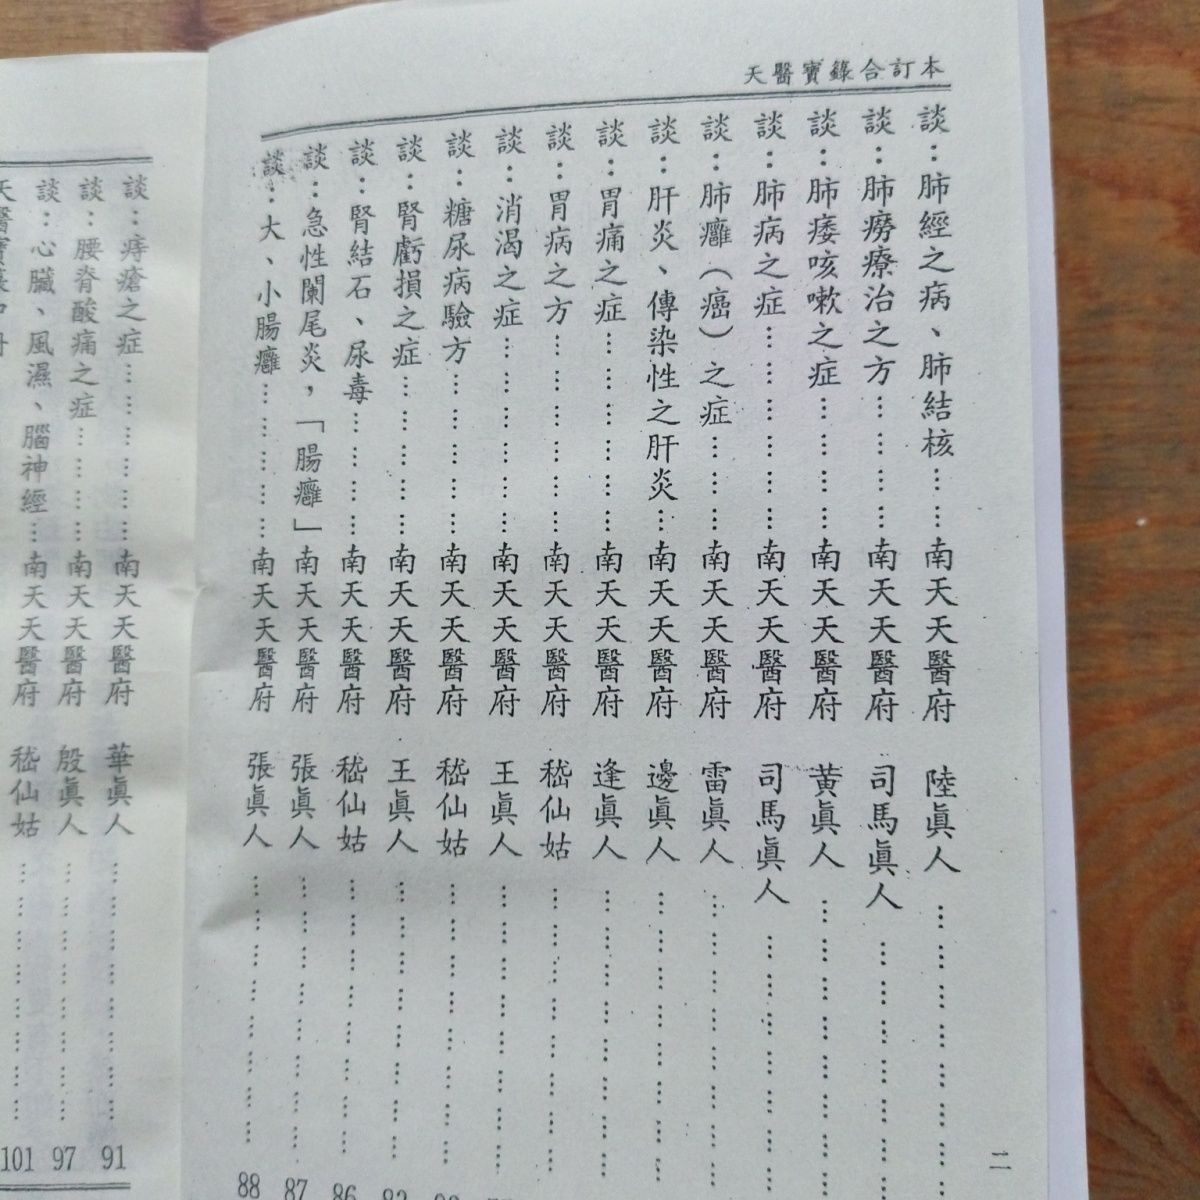 天醫寶籙合訂本
談：肺經之病、肺結核………南天天醫府 陸眞人………………………
談：肺癆療治之方…………南天天醫府 司馬眞人………………………
談：肺痿咳嗽之症…………南天天醫府 黃眞人………………………
談：肺病之症………………南天天醫府 司馬眞人………………………
談：肺癰（癌）之症………南天天醫府 雷眞人………………………
談：肝炎、傳染性之肝炎…南天天醫府 邊眞人………………………
談：胃痛之症………………南天天醫府 逢眞人………………………
談：胃病之方………………南天天醫府 嵇仙姑………………………
談：消渴之症………………南天天醫府 王眞人………………………
談：糖尿病驗方……………南天天醫府 嵇仙姑………………………
談：腎虧損之症……………南天天醫府 王眞人………………………
談：腎結石、尿毒…………南天天醫府 嵇仙姑………………………86
談：急性闌尾炎，「腸癰」南天天醫府 張眞人………………………87
談：大、小腸癰……………南天天醫府 張眞人………………………88
二
談：痔瘡之症………………南天天醫府 華眞人………………………91
談：腰脊酸痛之症…………南天天醫府 殷眞人………………………97
談：心臟、風濕、腦神經…南天天醫府 嵇仙姑………………………101
天醫寶籙